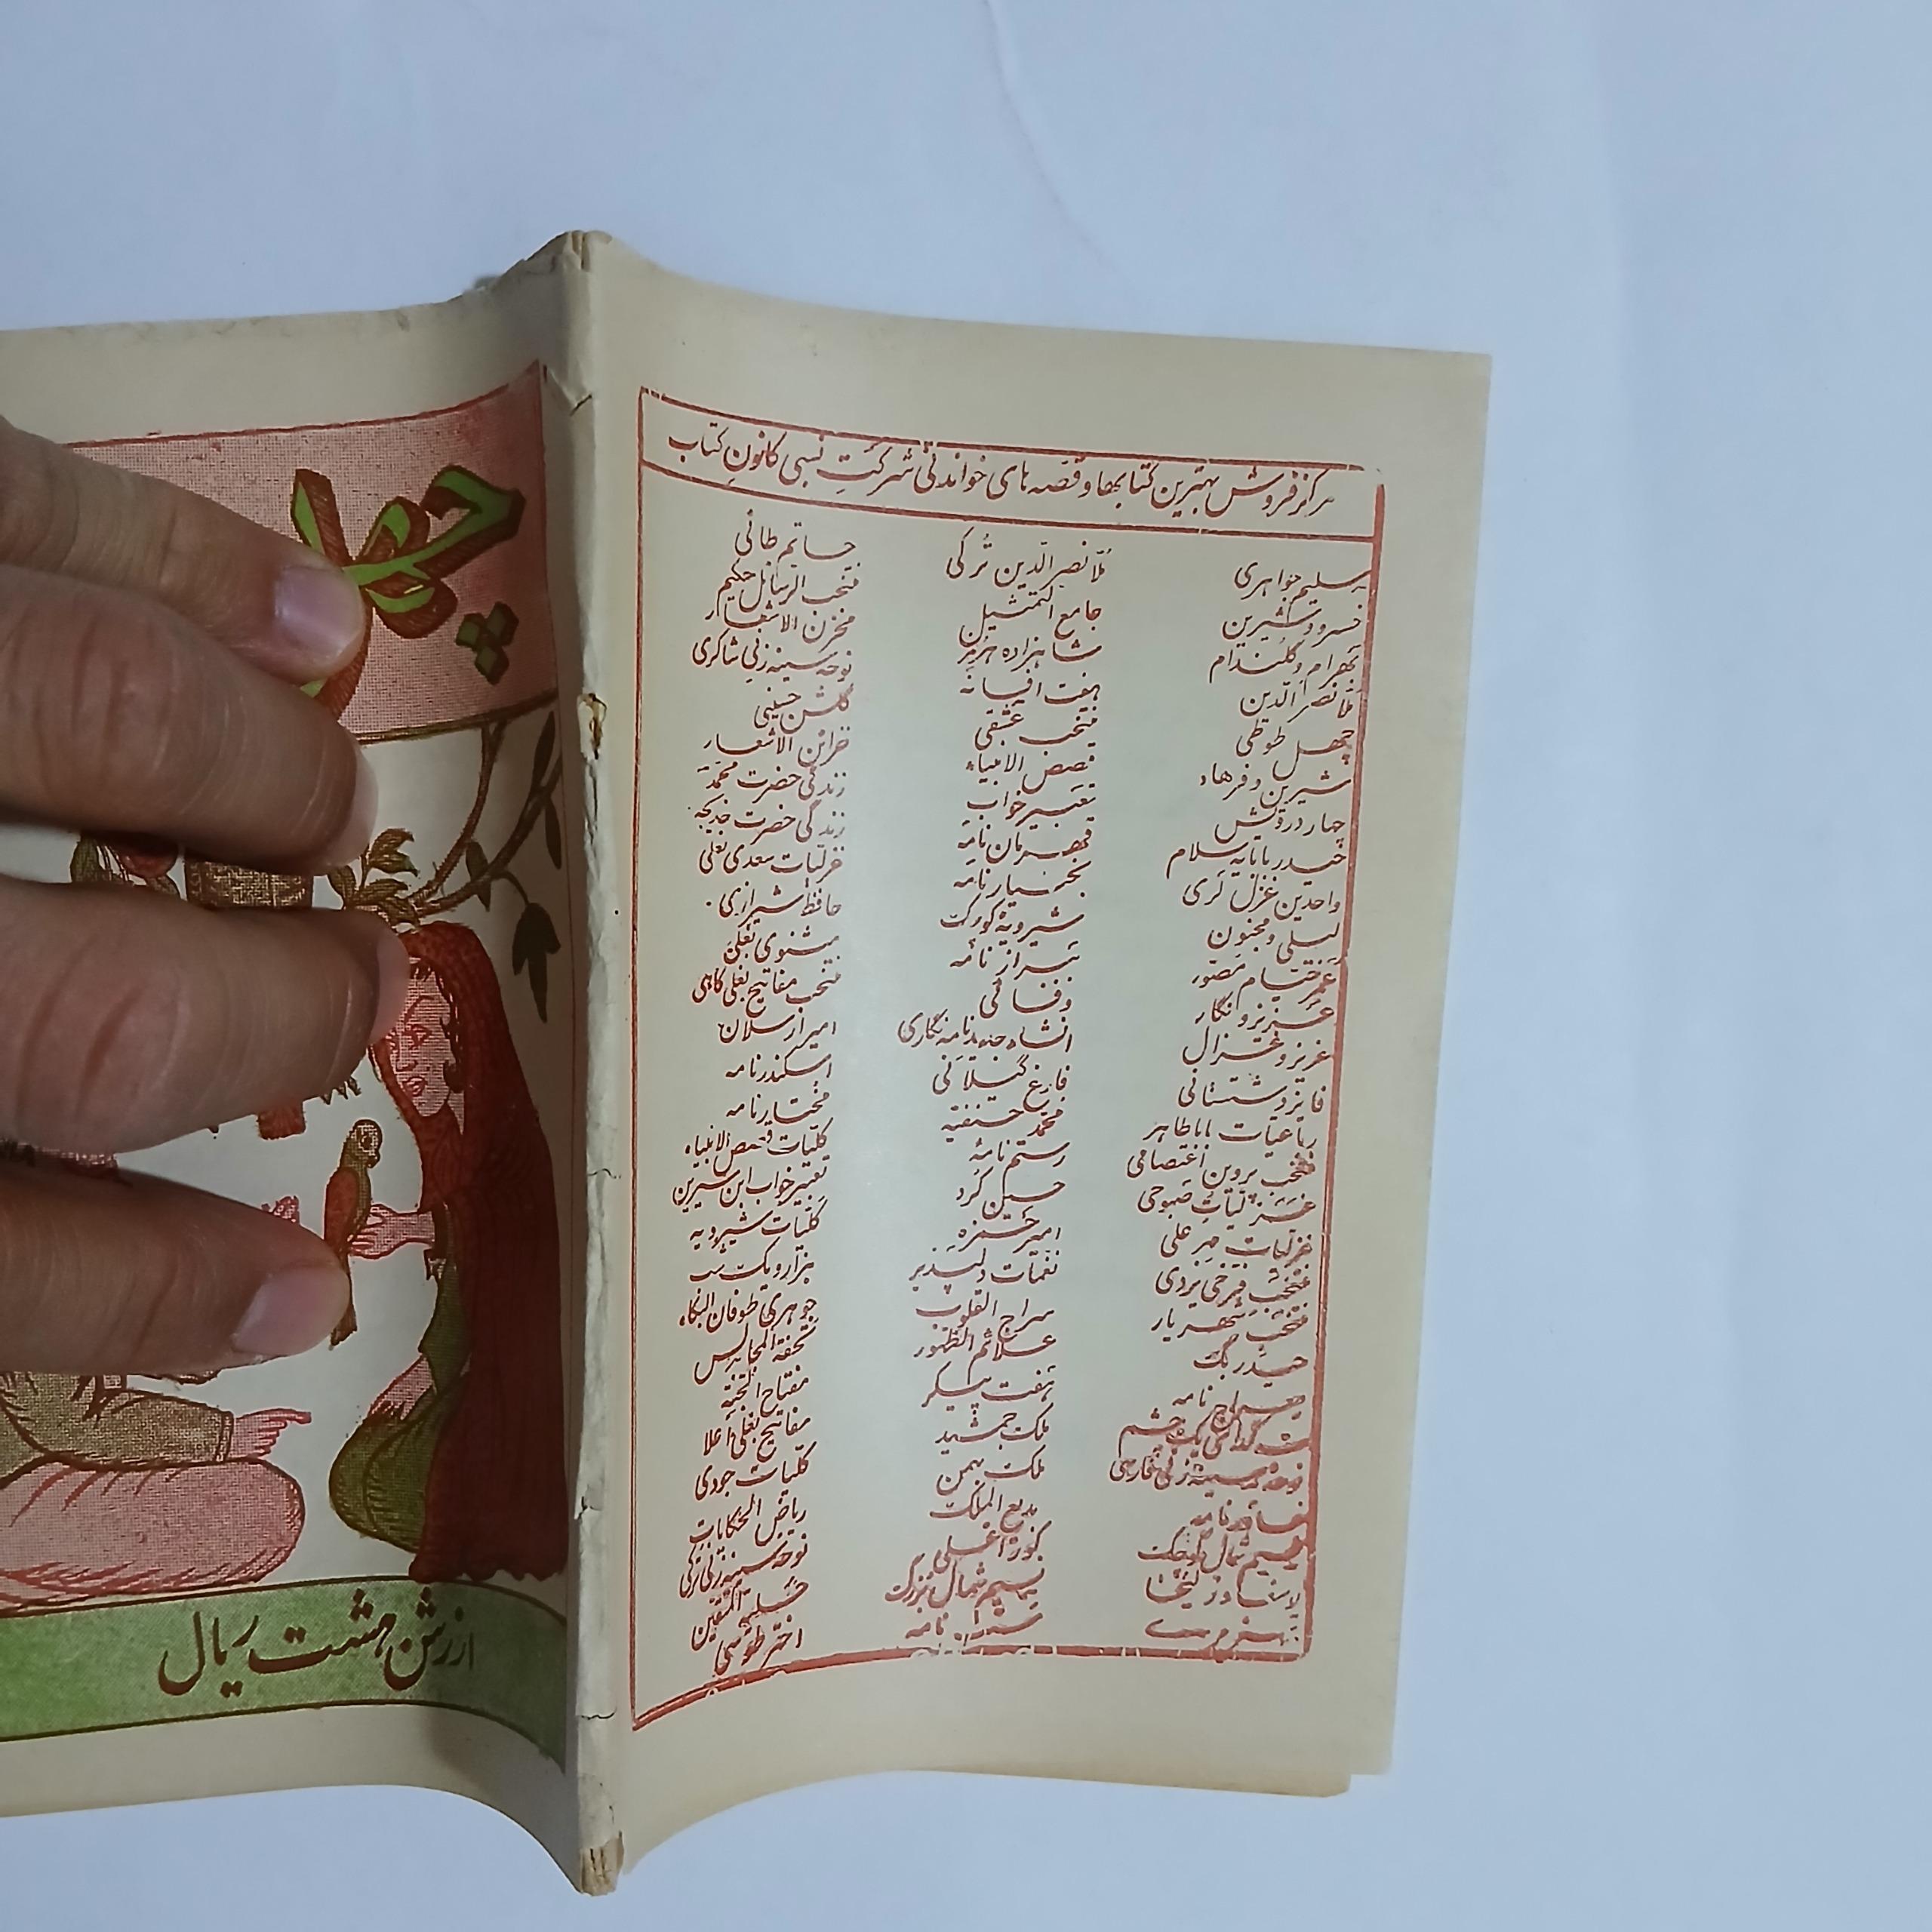 ارزش هشت ریال
مرکز فروش بهترین کتابها و قصه های خواندنی شرکت نسبی کانون کتاب
سلیم جواهری
خسرو و شیرین
بهرام و گلندام
ملا نصرالدین
چهل طوطی
شیرین و فرهاد
چهار درویش
حیدربابایه سلام
واحدین غزل لری
لیلی و مجنون
عمر خیام مصور
عزیز و نگار
عزیز و غزال
فایز دشتستانی
رباعیات باباطاهر
منتخب پروین اعتصامی
غزلیات صبوحی
غزلیات میر علی
منتخب فرخی یزدی
منتخب شهریار
حیدر بگ
معراج نامه
گدای یک چشم
نوحه سینه زنی فارسی
نسیم شمال کوچک
زلیخا
ملا نصرالدین ترکی
جامع التمثیل
شاهزاده هرمز
هفت افسانه
منتخب عشقی
قصص الانبیاء
تعبیر خواب
قهرمان نامه
بختیار نامه
شیرویه کوچک
شیراز نامه
وفائی
انشاء جدید نامه نگاری
فارغ گیلانی
محمد حنفیه
رستم نامه
حسین کرد
امیر حمزه
نغمات دلپذیر
سراج القلوب
علائم الظهور
هفت پیکر
ملک جمشید
ملک بهمن
بدیع الملک
کوراغلی
نسیم شمال بزرگ
نامه
حاتم طائی
منتخب الرسائل حکیم
مخزن الاشعار
نوحه سینه زنی شاکری
گلشن حسینی
خزائن الاشعار
زندگی حضرت محمد
زندگی حضرت خدیجه
غزلیات سعدی بغلی
حافظ شیرازی
مثنوی بغلی
منتخب مفاتیح بغلی کاهی
امیر ارسلان
اسکندرنامه
مختارنامه
کلیات قصص الانبیاء
تعبیر خواب ابن سیرین
کلیات شیرویه
هزار و یک شب
جوهری طوفان البکاء
تحفة المجالس
مفتاح الجنة
مفاتیح بغلی اعلا
کلیات جودی
ریاض الحکایات
نوحه سینه زنی ترکی
حلیة المتقین
اختر طوسی